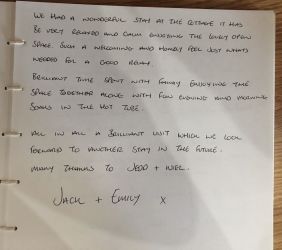 WE HAD A WONDERFUL STAY AT THE COTTAGE IT HAS
BE VERY RELAXED AND CALM ENJOYING THE LOVELY OPEN
SPACE. SUCH A WELCOMING AND HOMELY FEEL JUST WHATS
NEEDED FOR A GOOD BREAK.
BRILLIANT TIME SPENT WITH FAMILY ENJOYING THE
SPACE TOGETHER ALONG WITH FUN EVENING AND MORNING
SOAKS IN THE HOT TUB.
ALL IN ALL A BRILLIANT VISIT WHICH WE LOOK
FORWARD TO ANOTHER STAY IN THE FUTURE.
MANY THANKS TO +
JACK + EMILY x